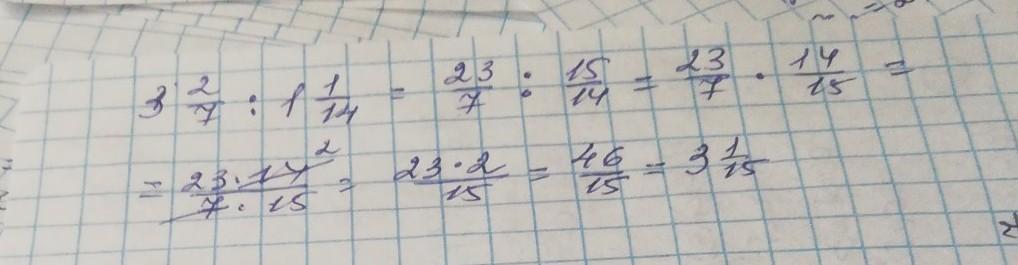 3 2/7 : 1 1/14 = 23/7 : 15/14 = 23/7 · 14/15 =
= 23·14 2/7·15 = 23·2/15 = 46/15 = 3 1/15